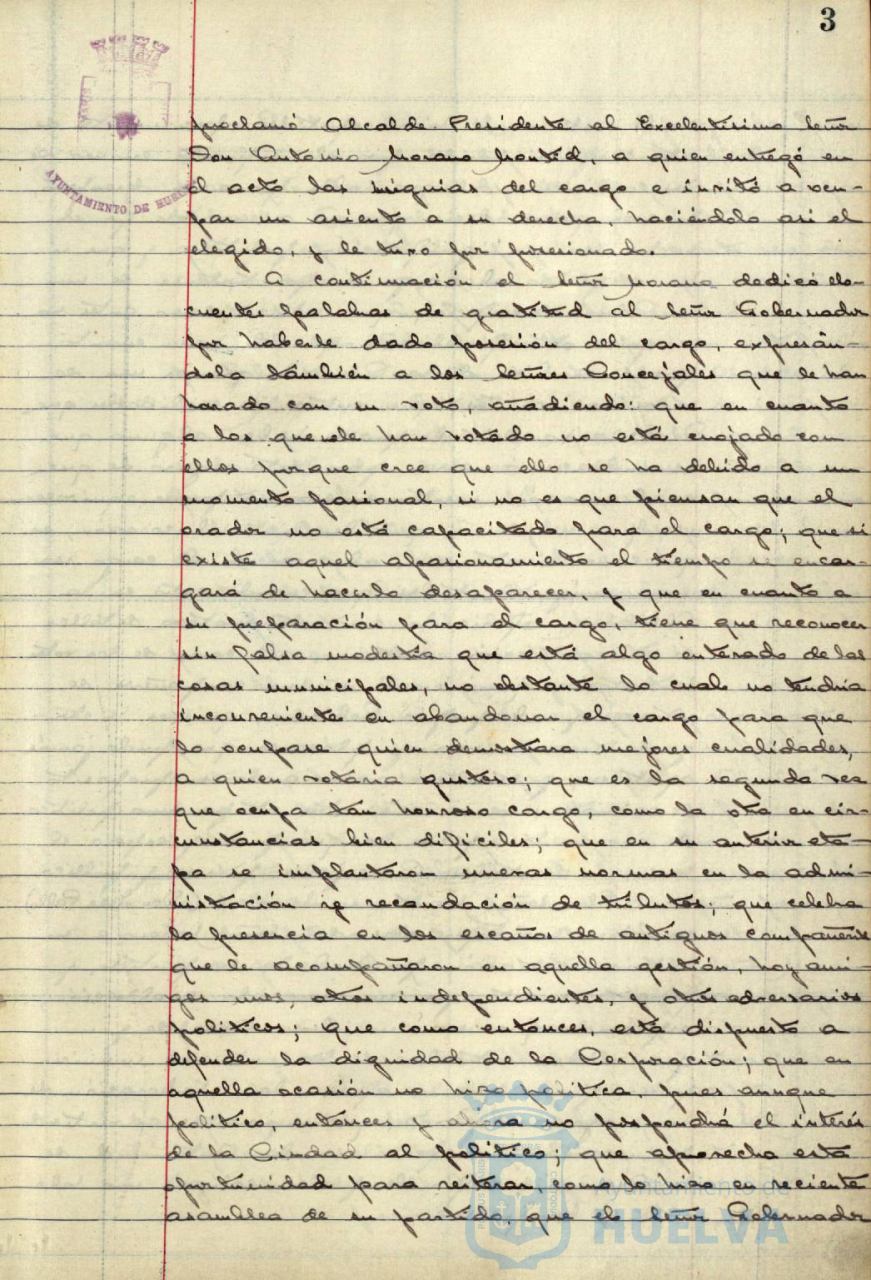 3
AYUNTAMIENTO DE HUELVA
proclamó Alcalde Presidente al Excelentísimo Señor
Don Antonio Morano Montiel, a quien entregó en
el acto las insignias del cargo e invitó a ocu-
par un asiento a su derecha, haciéndolo así el
elegido, y le tuvo por posesionado.
A continuación el Señor Morano dedicó elo-
cuentes palabras de gratitud al Señor Gobernador
por haberle dado posesión del cargo, expresán-
dola también a los Señores Concejales que le han
honrado con su voto, añadiendo: que en cuanto
a los que no le han votado no está enojado con
ellos porque cree que ello se ha debido a un
momento pasional, si no es que piensan que el
orador no está capacitado para el cargo; que si
existe aquel apasionamiento el tiempo se encar-
gará de hacerlo desaparecer, y que en cuanto a
su preparación para el cargo, tiene que reconocer
sin falsa modestia que está algo enterado de las
cosas municipales, no obstante lo cual no tendría
inconveniente en abandonar el cargo para que
lo ocupase quien demostrara mejores cualidades,
a quien votaría gustoso; que es la segunda vez
que ocupa tan honroso cargo, como la otra en cir-
cunstancias bien difíciles; que en su anterior eta-
pa se implantaron nuevas normas en la admi-
nistración y recaudación de tributos; que celebra
la presencia en los escaños de antiguos compañeros
que le acompañaron en aquella gestión, hoy ami-
gos unos, otros independientes, y otros adversarios
políticos; que como entonces, está dispuesto a
defender la dignidad de la Corporación; que en
aquella ocasión no hizo política, pues aunque
político, entonces y ahora no pospondrá el interés
de la Ciudad al político; que aprovecha esta
oportunidad para reiterar, como lo hizo en reciente
asamblea de su partido, que el Señor Gobernador
Ayuntamiento de
HUELVA